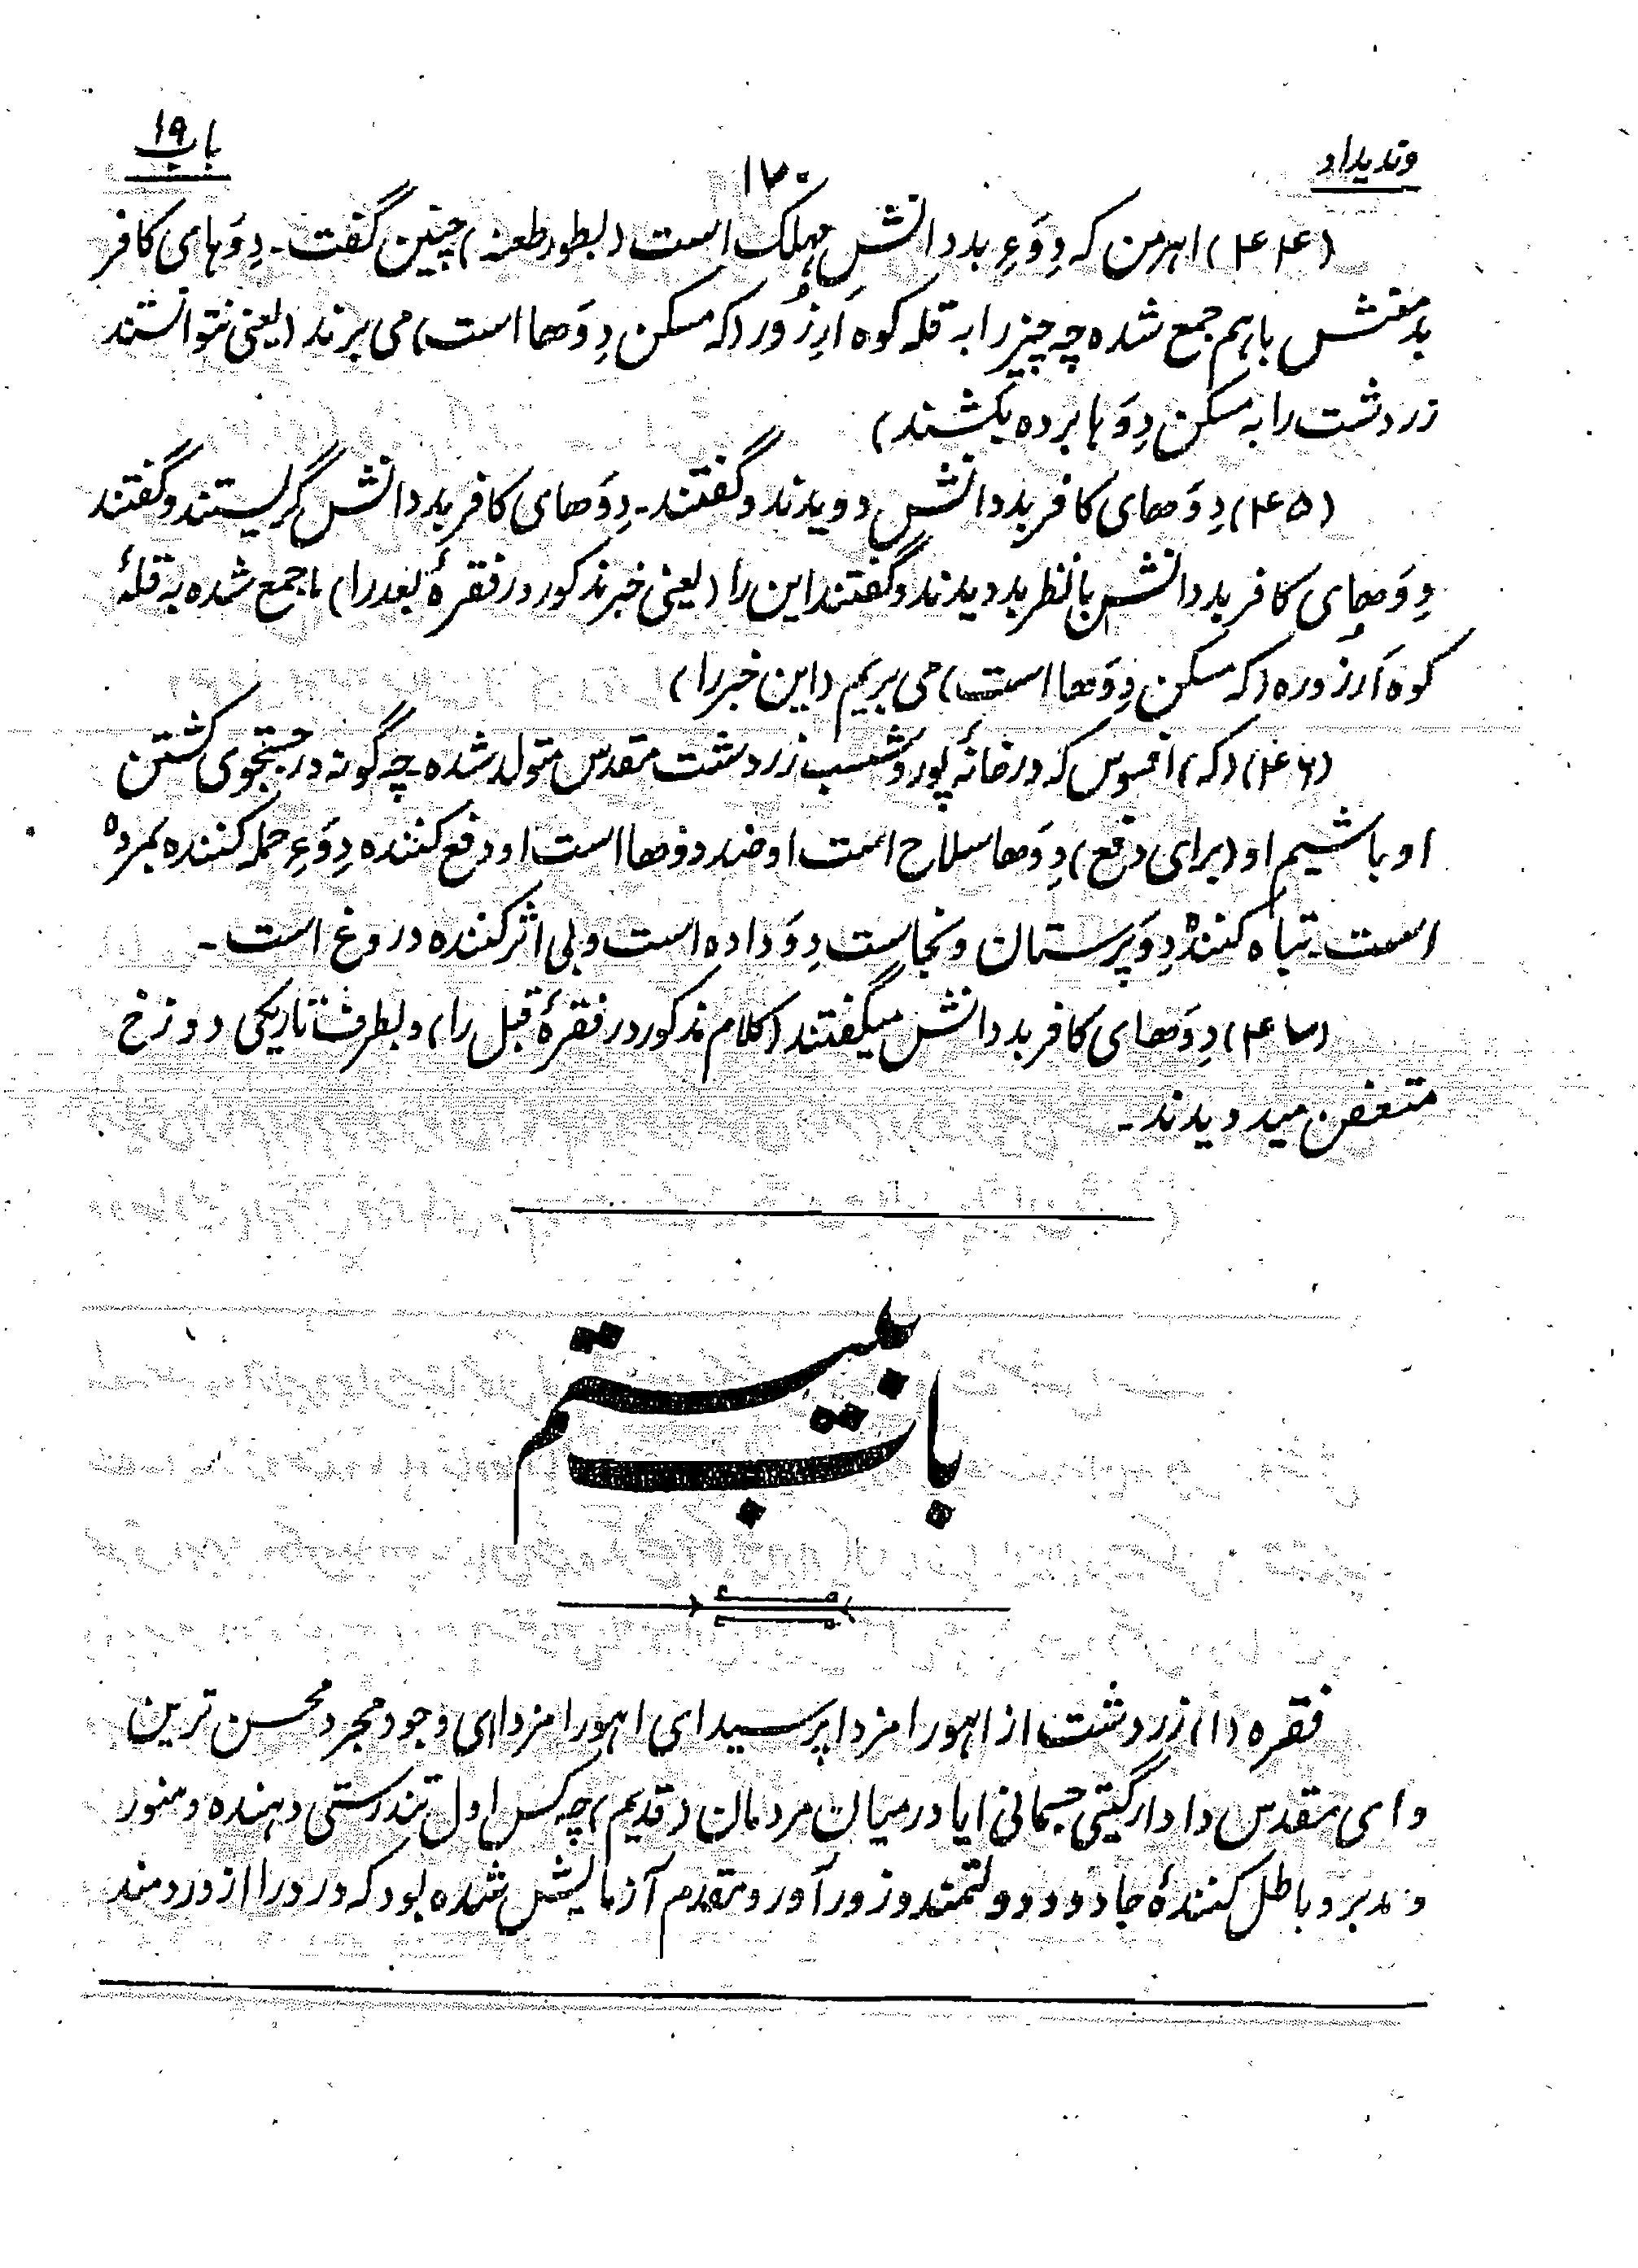 وندیداد
۱۷۰
باب ۱۹
(۴۴) اهرمن که دِوَعِ بد دانشِ مهلک است (بطور طعنه) چنین گفت - دِوَهای کافر
بد منش باهم جمع شده چه چیز را به قله کوه اَرِزُور (که مسکن دِوَها است) می برند (یعنی نتوانستند
زردشت را به مسکن دِوَها برده بکشند)
(۴۵) دِوَهای کافر بد دانش دویدند و گفتند - دِوَهای کافر بد دانش گریستند و گفتند
دِوَهای کافر بد دانش با نظر بد دیدند و گفتند این را (یعنی خبر مذکور در فقرهٔ بعد را) ما جمع شده به قلهٔ
کوه اَرزُوره (که مسکن دِوَها است) می بریم (این خبر را)
(۴۶) (که) افسوس که در خانهٔ پوروشسب زردشت مقدس متولد شده چه گونه در جستجوی کشتن
او باشیم او (برای دفع) دِوَها سلاح است او ضد دوها است او دفع کننده دِوَعِ حمله کننده بمرده
است - تباه کنندهٔ دِوَپرستان و نجاست دِوَداده است و بی اثر کننده دروغ است -
(۴۷) دِوَهای کافر بد دانش میگفتند (کلام مذکور در فقرهٔ قبل را) و بطرف تاریکی دوزخ
متعفن میدویدند -
باب بیستم
فقره (۱) زردشت از اهورا مزدا پرسید ای اهورا مزدا ای وجود مجرد محسن ترین
و ای مقدس دادار گیتی جسمانی ایا در میان مردمان (قدیم) چه کس اول تندرستی دهنده و منور
و مدبر و باطل کنندهٔ جادو و دولتمند و زورآور و متقدم آزمایش شده بود که درد را از دردمند